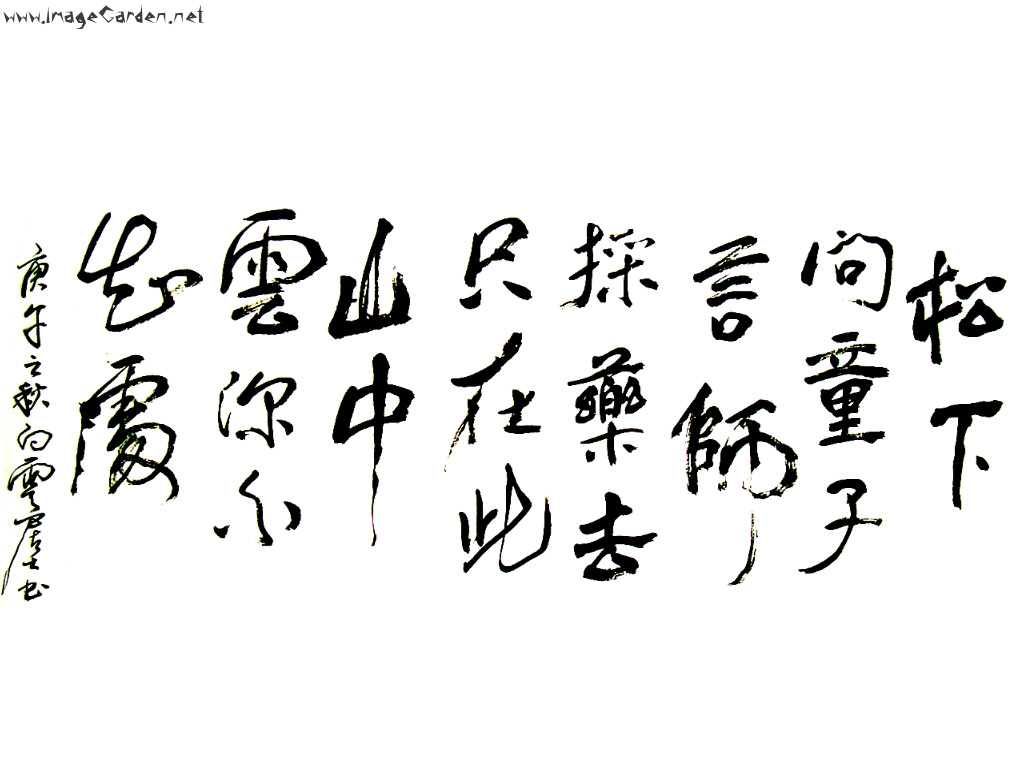 www.ImageGarden.net
松下
問童子
言師
採藥去
只在此
山中
雲深不
知處
庚午之秋白雲居士書